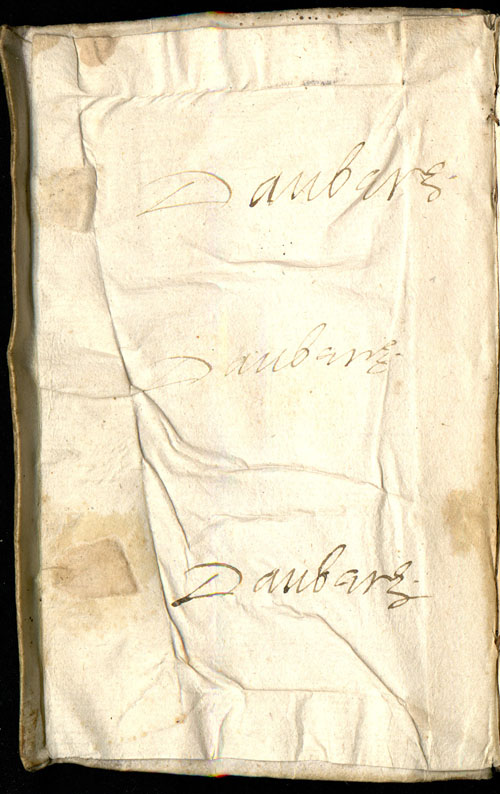 Daubarz
Daubarz
Daubarz